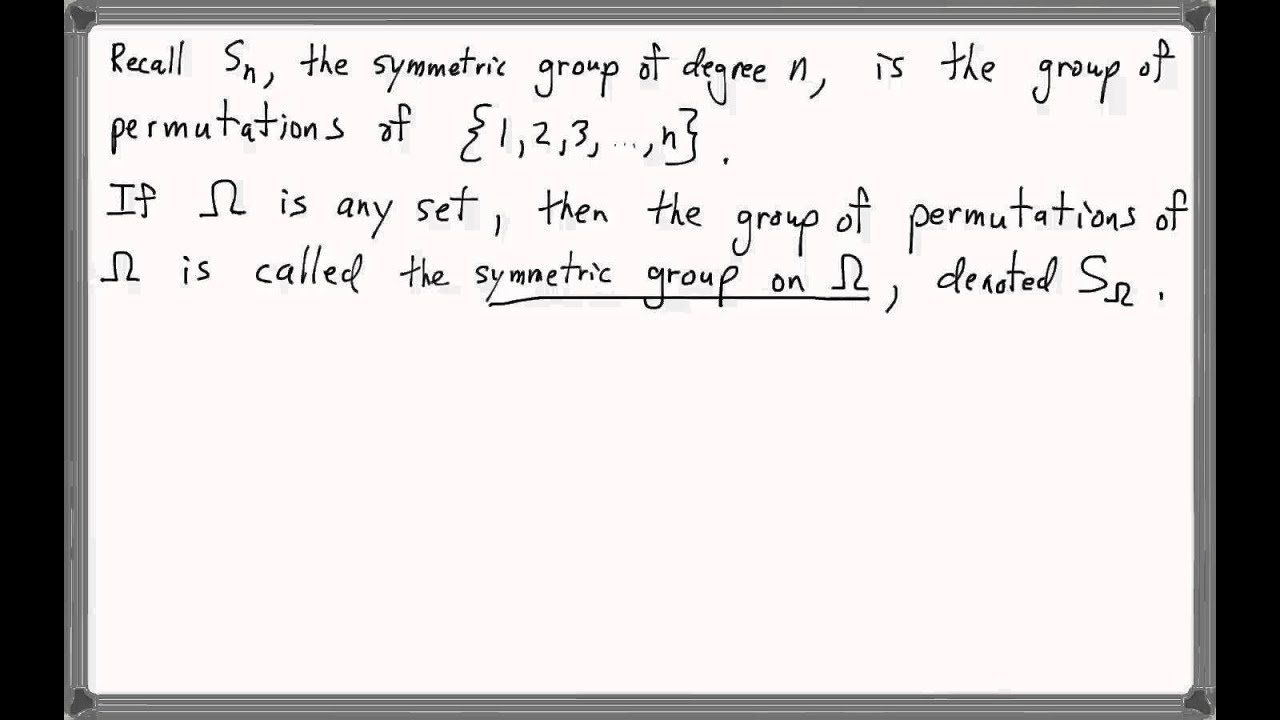 Recall Sₙ, the symmetric group of degree n, is the group of
permutations of {1,2,3,...,n}.
If Ω is any set, then the group of permutations of
Ω is called the symmetric group on Ω, denoted S_Ω.